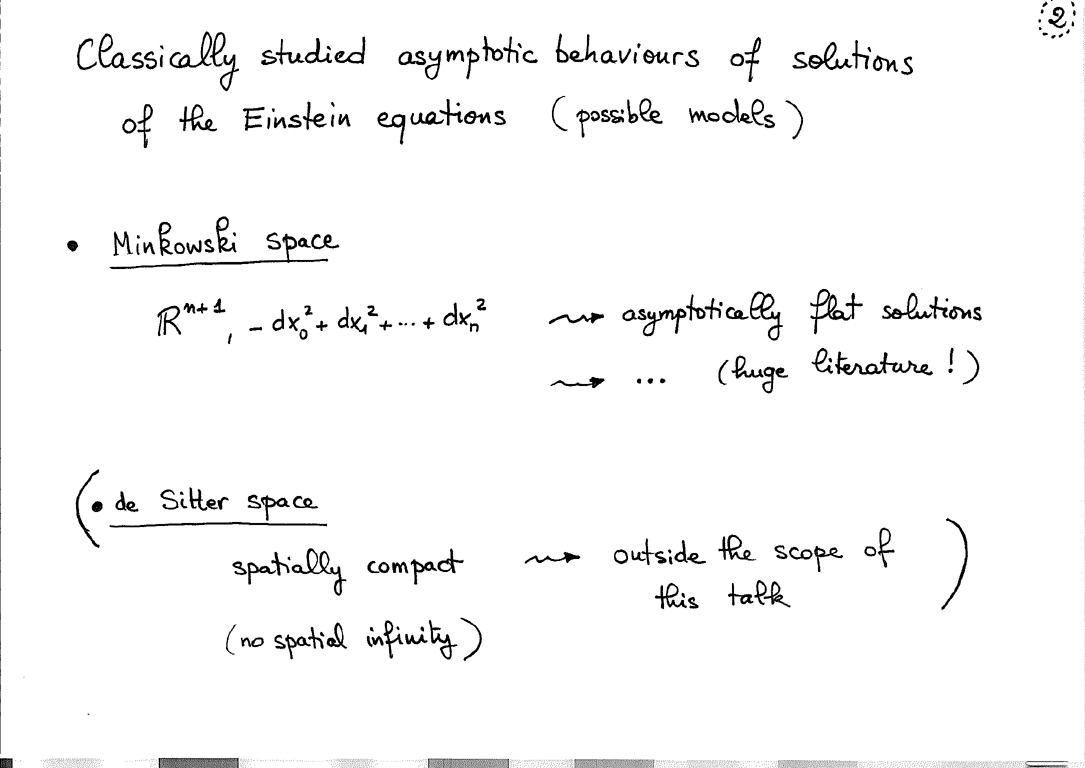 2
Classically studied asymptotic behaviours of solutions
of the Einstein equations (possible models)
• Minkowski space
ℝⁿ⁺¹, − dx₀² + dx₁² + ... + dxₙ² ⇝ asymptotically flat solutions
⇝ ... (huge literature!)
(• de Sitter space
spatially compact ⇝ outside the scope of
this talk)
(no spatial infinity)